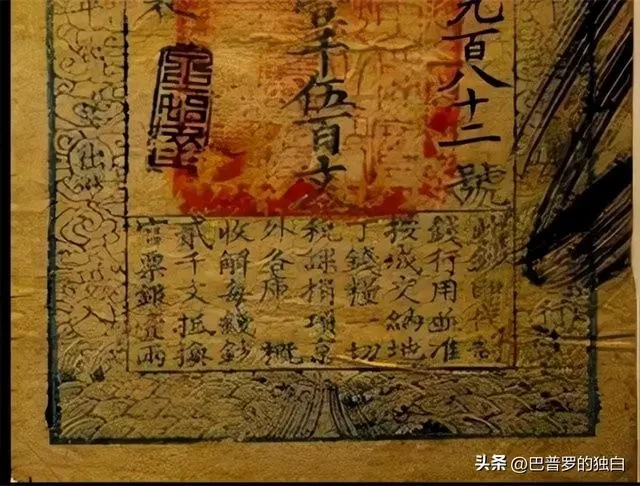 九百八十二號
壹千伍百文
此鈔即代制
錢行用並准
按成交納地
丁錢糧一切
稅課捐項京
外各庫一概
收解每錢鈔
貳千文抵換
官票銀壹兩
行
入
头条 @巴普罗的独白